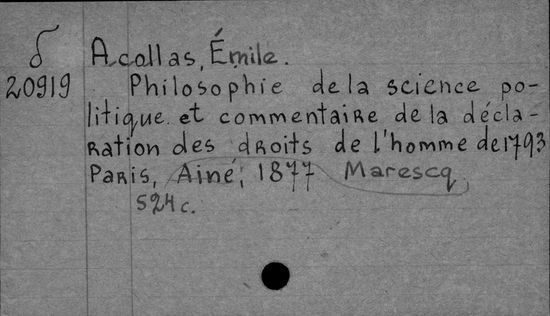 δ Acollas, Émile.
20919 Philosophie de la science po-
litique et commentaire de la décla-
ration des droits de l'homme de 1793
Paris, Ainé, 1877 Marescq
524 c.